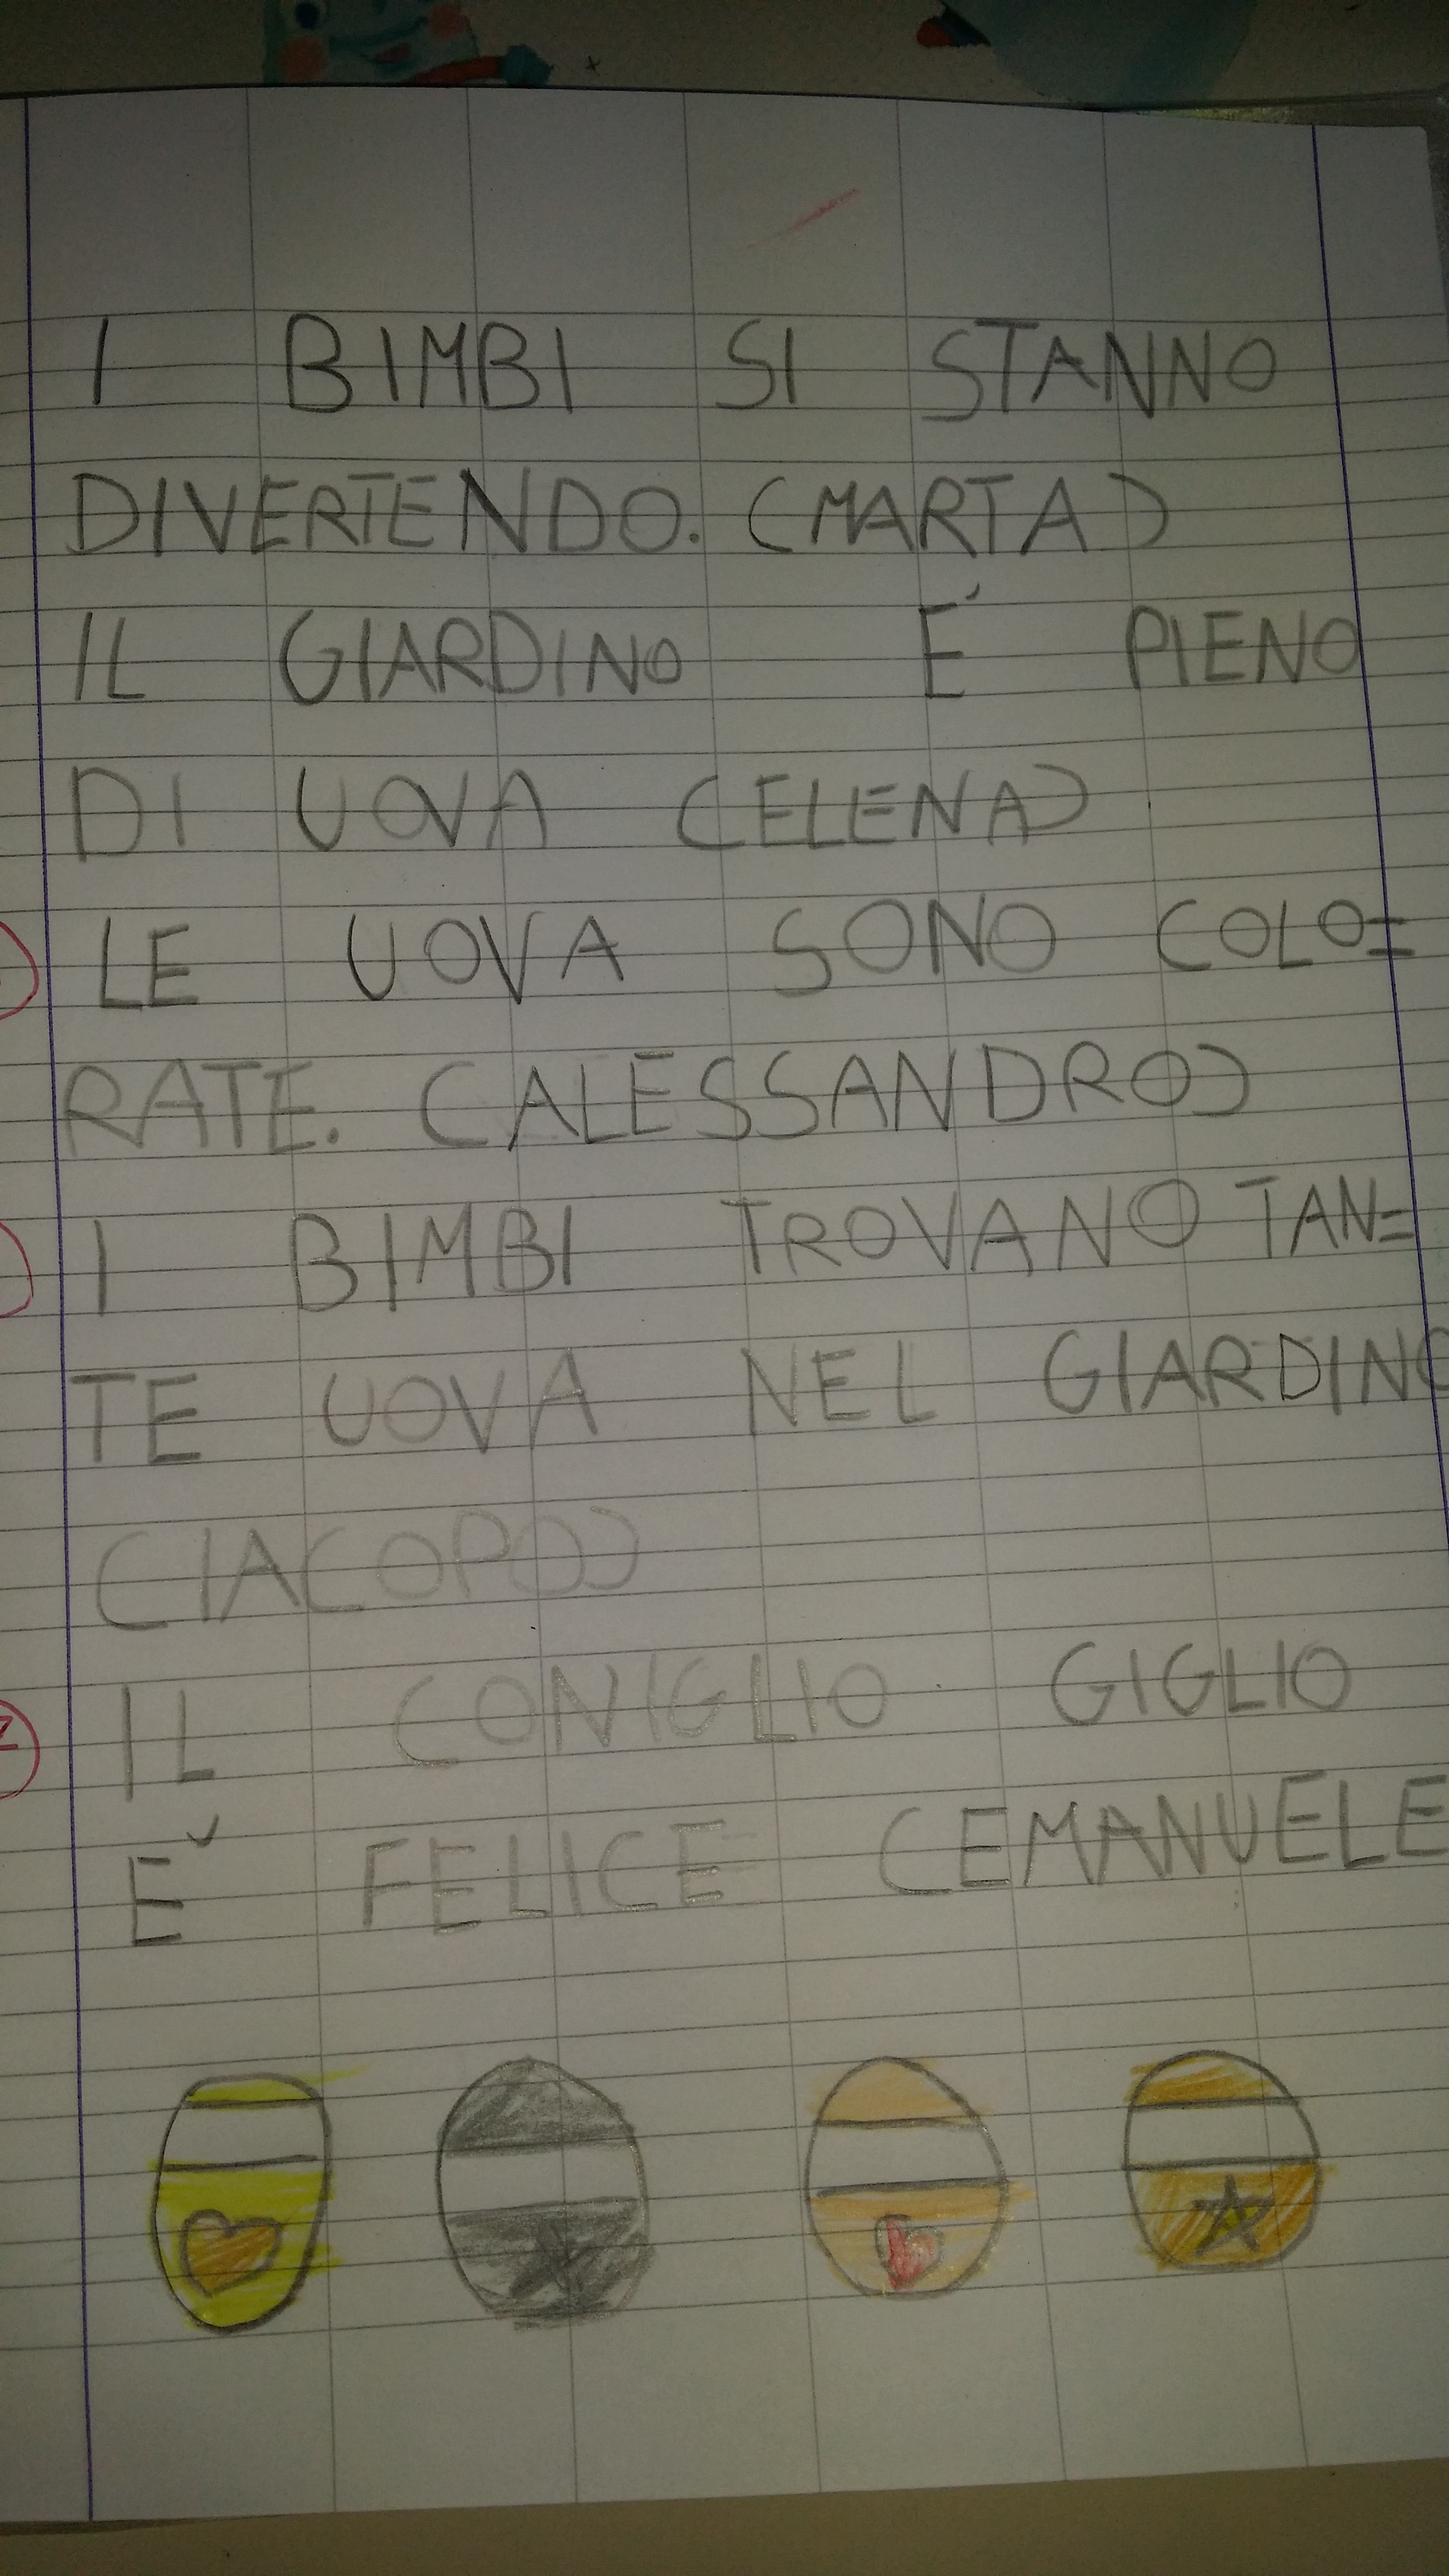 I BIMBI SI STANNO
DIVERTENDO. (MARTA)
IL GIARDINO É PIENO
DI UOVA (ELENA)
LE UOVA SONO COLO=
RATE. (ALESSANDRO)
I BIMBI TROVANO TAN=
TE UOVA NEL GIARDINO
(IACOPO)
IL CONIGLIO GIGLIO
É FELICE (EMANUELE